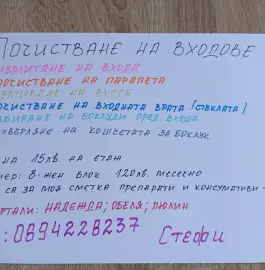 ПОЧИСТВАНЕ НА ВХОДОВЕ
ИЗМИТАНЕ НА ВХОДА
ПОЧИСТВАНЕ НА ПАРАПЕТА
НА ВХОДА
ПОЧИСТВАНЕ НА ВХОДНАТА ВРАТА (СТЪКЛАТА)
СЪБИРАНЕ НА БОКЛУЦИ ПРЕД ВХОДА
ХВЪРЛЯНЕ НА КОШЧЕТАТА ЗА БОКЛУК
НА 15ЛВ. НА ЕТАЖ
МЕР: 8-МЕН БЛОК 120ЛВ. МЕСЕЧНО
СА ЗА МОЯ СМЕТКА ПРЕПАРАТИ И КОНСУМАТИВИ
РТАЛИ: НАДЕЖДА; ОБЕЛЯ; ЛЮЛИН
: 0894228237 СТЕФИ